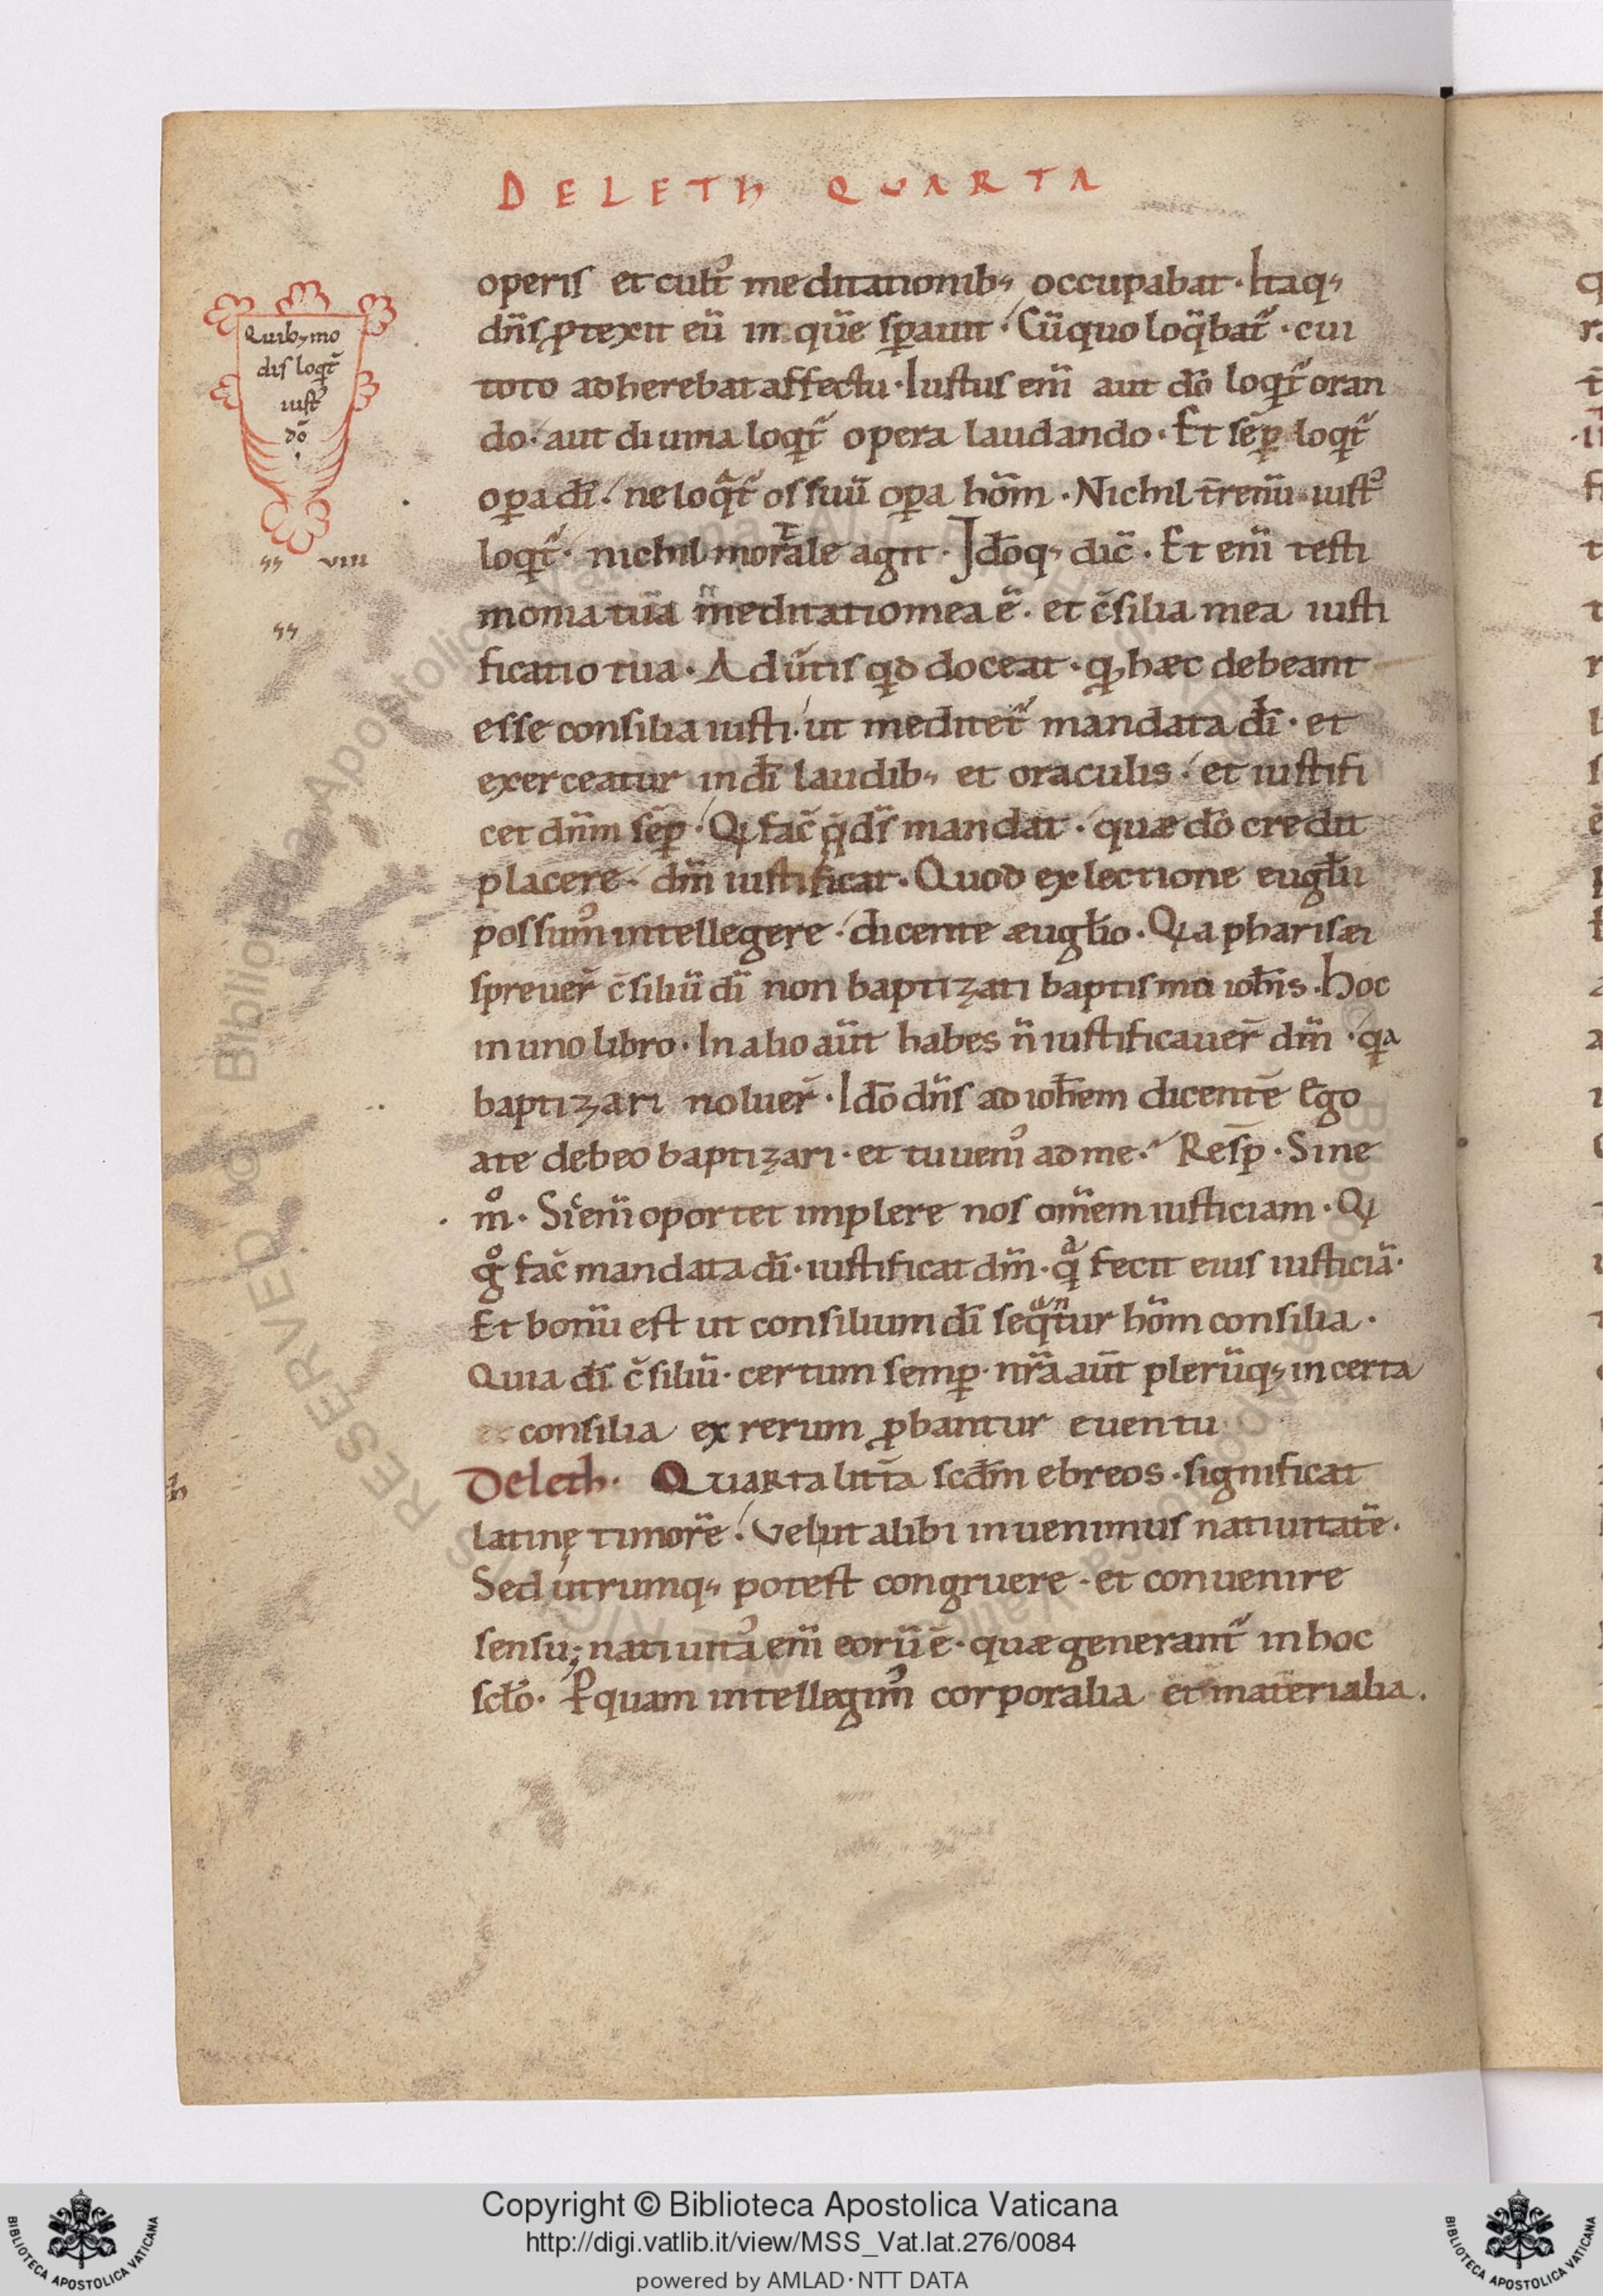 DELETH QUARTA
Quib; mo
dis loq̄t᷑
iustꝰ
dō
viii
operis et cultꝰ meditationib; occupabat · Itaq;
dn̄s ꝓtexit eū in quē sꝑauit · Cū quo loq̄bat᷑ · cui
toto adherebat affectu · Iustus eni̅ aut dō loqt᷑ oran
do · aut diuina loqt᷑ opera laudando · Et sēꝑ loqt᷑
oꝑa dī · ne loqt᷑ os suū oꝑa hom̄ · Nichil t̄renū iustꝰ
loqt᷑ · nichil mortale agit · Idōq; dic̄ · Et eni̅ testi
monia tua m̄editatio mea ē · et c̄silia mea iusti
ficatio tua · Aduͥtis qd doceat · ꝙ hæc debeant
esse consilia iusti · ut meditet᷑ mandata dī · et
exerceatur in dī laudib; et oraculis · et iustifi
cet dn̄m sēꝑ · Qi fac̄ q̄ ds̄ mandat · quæ dō credit
placere · dn̄m iustificat · Quod ex lectione eugl̄ii
possumꝰ intellegere · dicente æugl̄io · Qia pharisæi
spreuer̄ c̄siliū dī non baptizati baptismū ioh̄is · hoc
in uno libro · In alio aūt habes n̄ iustificauer̄ dn̄m · qa
baptizari noluer̄ · Idō dn̄s ad ioh̄em dicentē Ego
a te debeo baptizari · et tu uenꝰ ad me · Resꝑ · Sine
mͦ · Sic eni̅ oportet implere nos om̄em iusticiam · Qi
gͦ fac̄ mandata dī · iustificat dn̄m · qa fecit eius iusticiā ·
Et bonū est ut consilium dī seqantur hom̄ consilia ·
Quia dī c̄siliū · certum semꝑ · nr̄a aūt plerūq; incerta
et consilia ex rerum ꝓbantur euentu
Deleth · Quarta litt̄a scd̄m ebreos · significat
latinę timorē · velut alibi inuenimus natiuitatē ·
Sed utrumq; potest congruere · et conuenire
sensu; natiuitꝰ eni̅ eorū ē · quæ generant᷑ in hoc
scl̄o · Ꝑ quam intellegimꝰ corporalia et materialia .
Copyright © Biblioteca Apostolica Vaticana
http://digi.vatlib.it/view/MSS_Vat.lat.276/0084
powered by AMLAD · NTT DATA
BIBLIOTECA APOSTOLICA VATICANA
BIBLIOTECA APOSTOLICA VATICANA